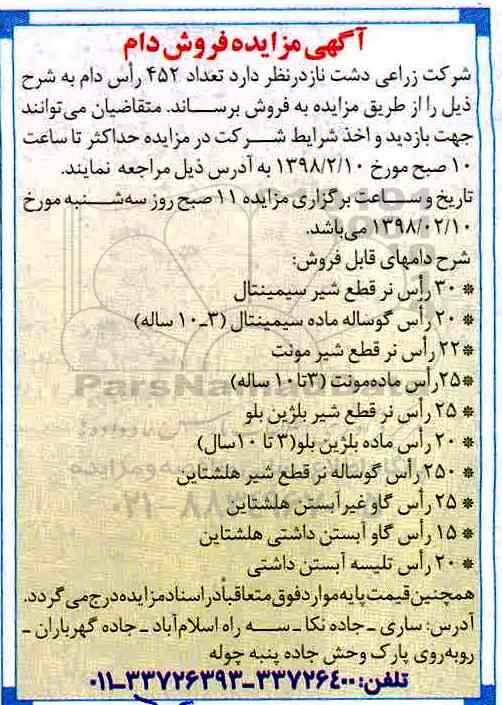 آگهی مزایده فروش دام
شرکت زراعی دشت ناز در نظر دارد تعداد ۴۵۲ رأس دام به شرح
ذیل را از طریق مزایده به فروش برساند. متقاضیان می‌توانند
جهت بازدید و اخذ شرایط شرکت در مزایده حداکثر تا ساعت
۱۰ صبح مورخ ۱۳۹۸/۲/۱۰ به آدرس ذیل مراجعه نمایند.
تاریخ و ساعت برگزاری مزایده ۱۱ صبح روز سه‌شنبه مورخ
۱۳۹۸/۰۲/۱۰ می‌باشد.
شرح دامهای قابل فروش:
* ۳۰ رأس نر قطع شیر سیمینتال
* ۲۰ رأس گوساله ماده سیمینتال (۳ـ۱۰ ساله)
* ۲۲ رأس نر قطع شیر مونت
* ۲۵ رأس ماده مونت (۳ تا ۱۰ ساله)
* ۲۵ رأس نر قطع شیر بلژین بلو
* ۲۰ رأس ماده بلژین بلو (۳ تا ۱۰ سال)
* ۲۵۰ رأس گوساله نر قطع شیر هلشتاین
* ۲۵ رأس گاو غیر آبستن هلشتاین
* ۱۵ رأس گاو آبستن داشتی هلشتاین
* ۲۰ رأس تلیسه آبستن داشتی
همچنین قیمت پایه موارد فوق متعاقباً در اسناد مزایده درج می‌گردد.
آدرس: ساری ـ جاده نکا ـ سه راه اسلام‌آباد ـ جاده گهرباران ـ
روبه‌روی پارک وحش جاده پنبه چوله
تلفن: ۳۳۷۲۶۴۰۰ـ۳۳۷۲۶۳۹۳ـ۰۱۱
ParsNamadData